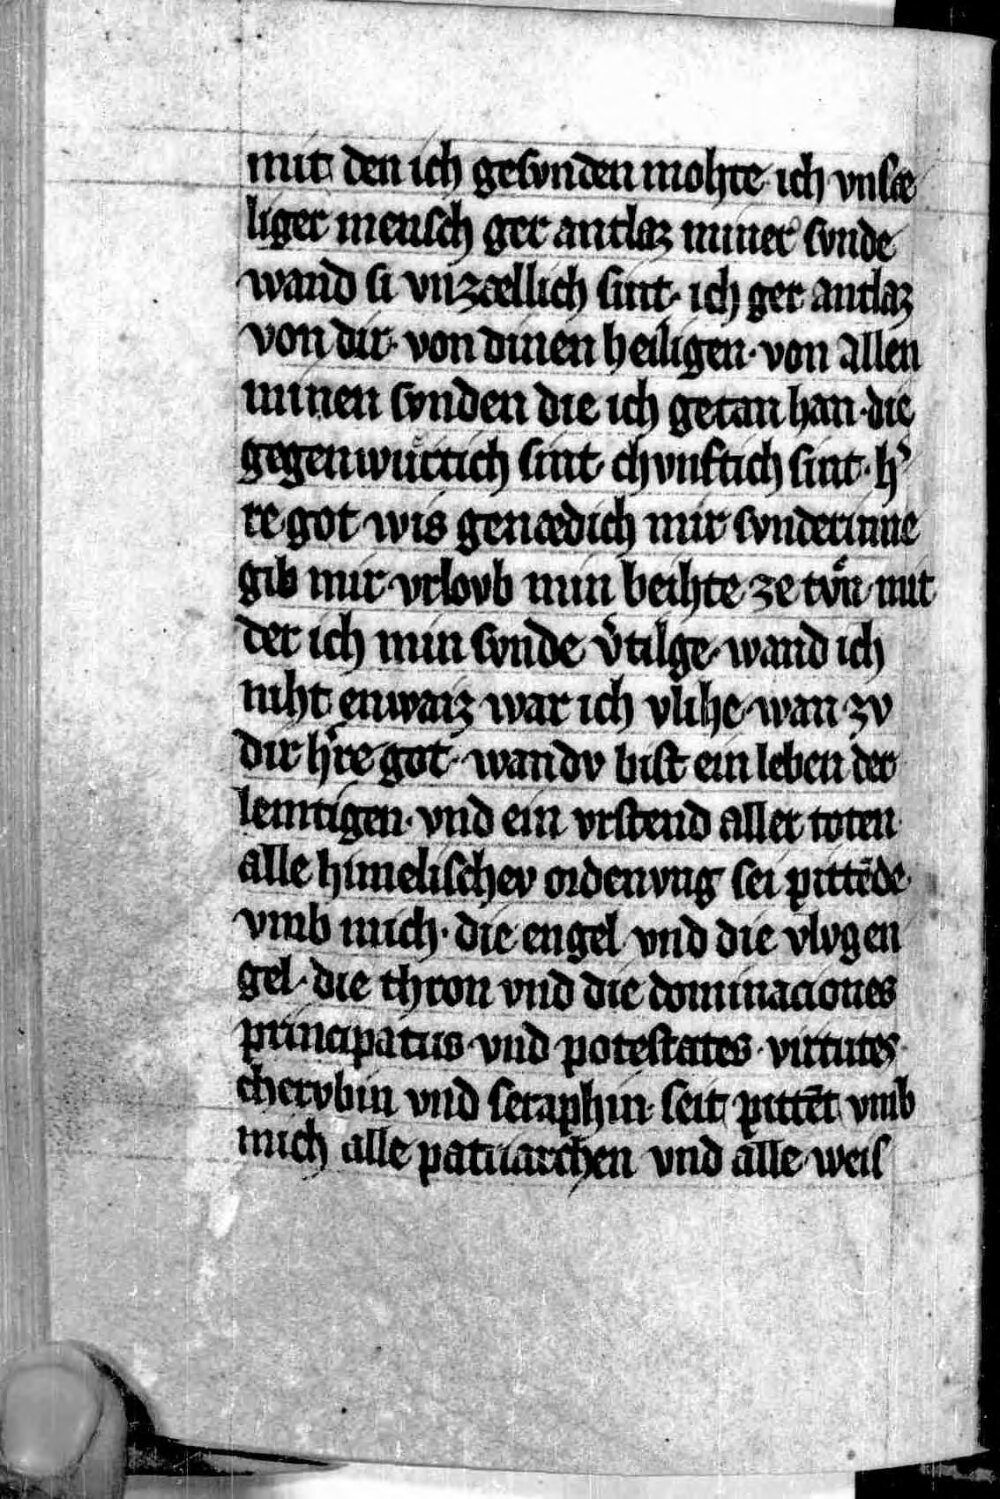 mit den ich gesvnden mohte ich vnsæ
liger mensch ger antlaz miner svnde
wand si vnzællich sint· ich ger antlaz
von dir· von dinen heiligen· von allen
minen svnden die ich getan han· die
gegenwuͤrtich sint chvnftich sint· h̾
re got wis genædich mir svnderinne
gib mir vrlovb min beihte ze tvͦn mit
der ich min svnde v̾tilge wand ich
niht enwaiz war ich vlihe wan zv
dir h̾re got· wandv bist ein leben der
lemtigen· vnd ein vrstend aller toten·
alle himelischev ordenvng sei pittēde·
vmb mich· die engel vnd die vlvgen
gel· die thron vnd die dominaciones
principatus vnd potestates· virtutes·
chervbin vnd seraphin· seit pittēt vmb
mich alle patriarchen vnd alle weis